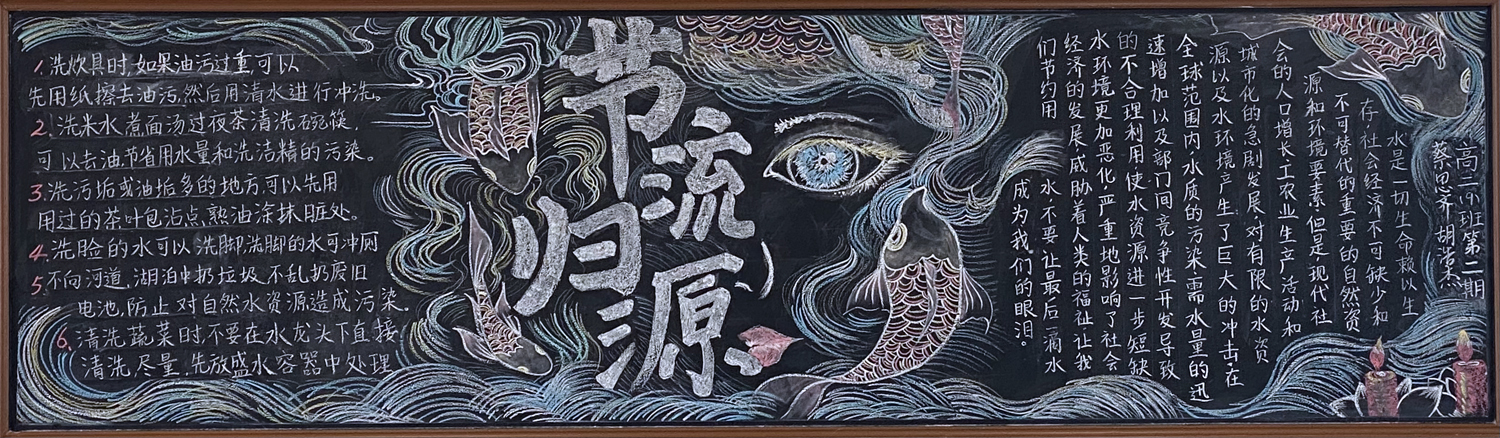 1.洗炊具时,如果油污过重,可以
先用纸擦去油污,然后用清水进行冲洗。
2.洗米水煮面汤过夜茶清洗碗筷,
可以去油节省用水量和洗洁精的污染。
3.洗污垢或油垢多的地方可以先用
用过的茶叶包沾点,熟油涂抹脏处。
4.洗脸的水可以洗脚,洗脚的水可冲厕
5.不向河道,湖泊中扔垃圾,不乱扔废旧
电池,防止对自然水资源造成污染。
6.清洗蔬菜时不要在水龙头下直接
清洗,尽量,先放盛水容器中处理
节流
归源
高二(9)班第二期
蔡思齐 胡滢杰
水是一切生命赖以生
存,社会经济不可缺少和
不可替代的重要的自然资
源和环境要素,但是,现代社
会的人口增长,工农业生产活动和
城市化的急剧发展,对有限的水资
源以及水环境产生了巨大的冲击,在
全球范围内,水质的污染,需水量的迅
速增加以及部门间竞争性开发导致
的不合理利用,使水资源进一步短缺
水环境更加恶化,严重地影响了社会
经济的发展,威胁着人类的福祉,让我
们节约用水,不要让最后一滴水
成为我们的眼泪。